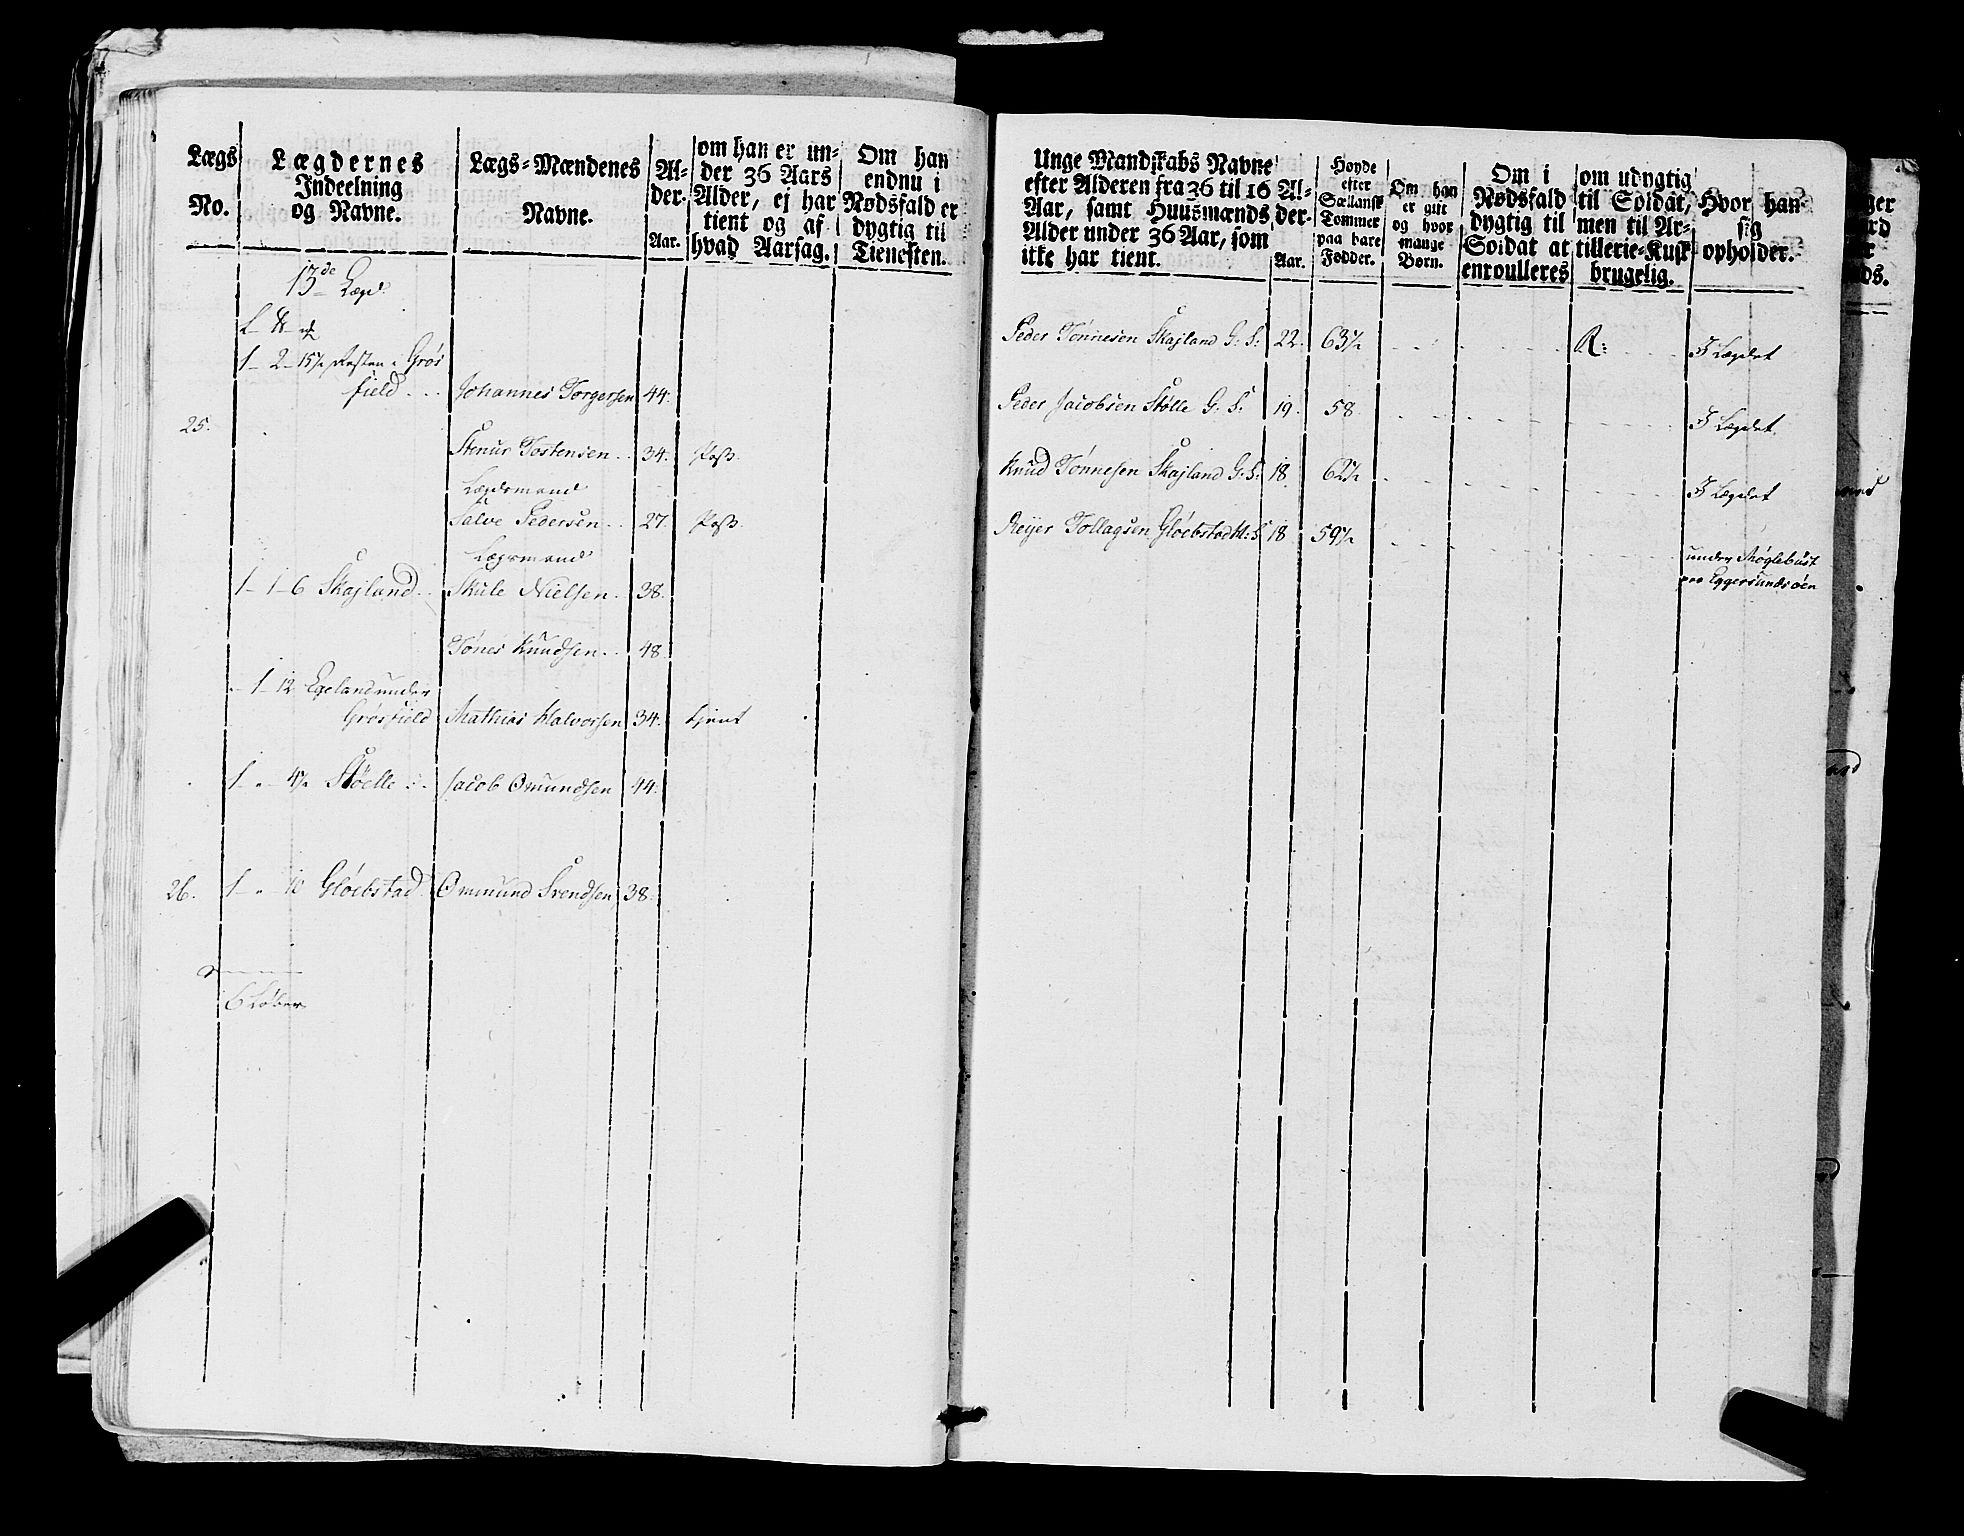 Lægs
No.
Lægdernes
Indeelning
og Navne.
Lægs-Mændenes
Navne.
Al-
der.
Aar.
om han er un-
der 36 Aars
Alder, ej har
tient og af
hvad Aarsag.
Om han
endnu i
Nødsfald er
dygtig til
Tienesten.
13de Lægd.
1 - 2 - 15½ Resten i Grøs
field . . . Johannes Torgersen 44.
25.
Stenur Tostensen . . 34. Pass.
Lægdsmand
Salve Pedersen . . 27. Pass.
Lægsmand
1 - 1 - 6 Skajland . . Skule Nielsen . 38.
Tønes Knudsen . . 48
1 - 12 Egeland under
Grøsfield Mathias Halvorsen 34. tjent
1 - " - 4½ Støelle . . Jacob Omundsen 44.
26. 1 - " 10 Gløebstad Ommund Svendsen 38.
6 Løber
Unge Mandskabs Navne
efter Alderen fra 36 til 16
Aar, samt Huusmænds
Alder under 36 Aar, som
ikke har tient.
Al-
der-
Aar.
Høyde
efter
Sællansk
Tommer
paa bare
Fødder.
Om han
er gift
og hvor
mange
Børn.
Om i
Nødsfald
dygtig til
Soldat at
enroulleres
om udygtig
til Soldat,
men til Ar-
tillerie-Kusk
brugelig.
Hvor han
sig
opholder.
Peder Tønnesen Skajland G. S. 22. 63½ R: I Lægdet
Peder Jacobsen Stølle G. S. 19. 58. I Lægdet.
Knud Tønnesen Skajland G. S. 18 62½ I Lægdet
Reyer Tollagsen Gløebstad H. S. 18 59½ under Møglebust
paa Eggersundsøen